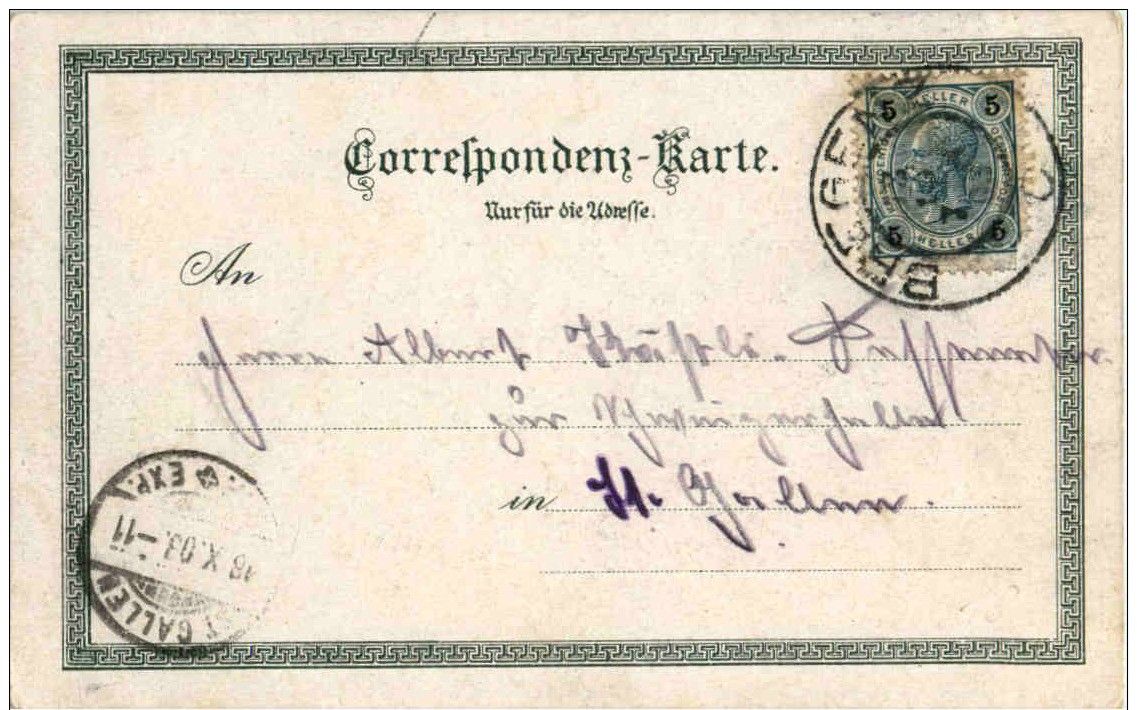 Correspondenz-Karte.
Nur für die Adresse.
5 HELLER 5
5 HELLER 5
BREGENZ
An
Herrn Albert
zur
in St. Gallen.
EXP.
18.X.03.-11
ST. GALLEN